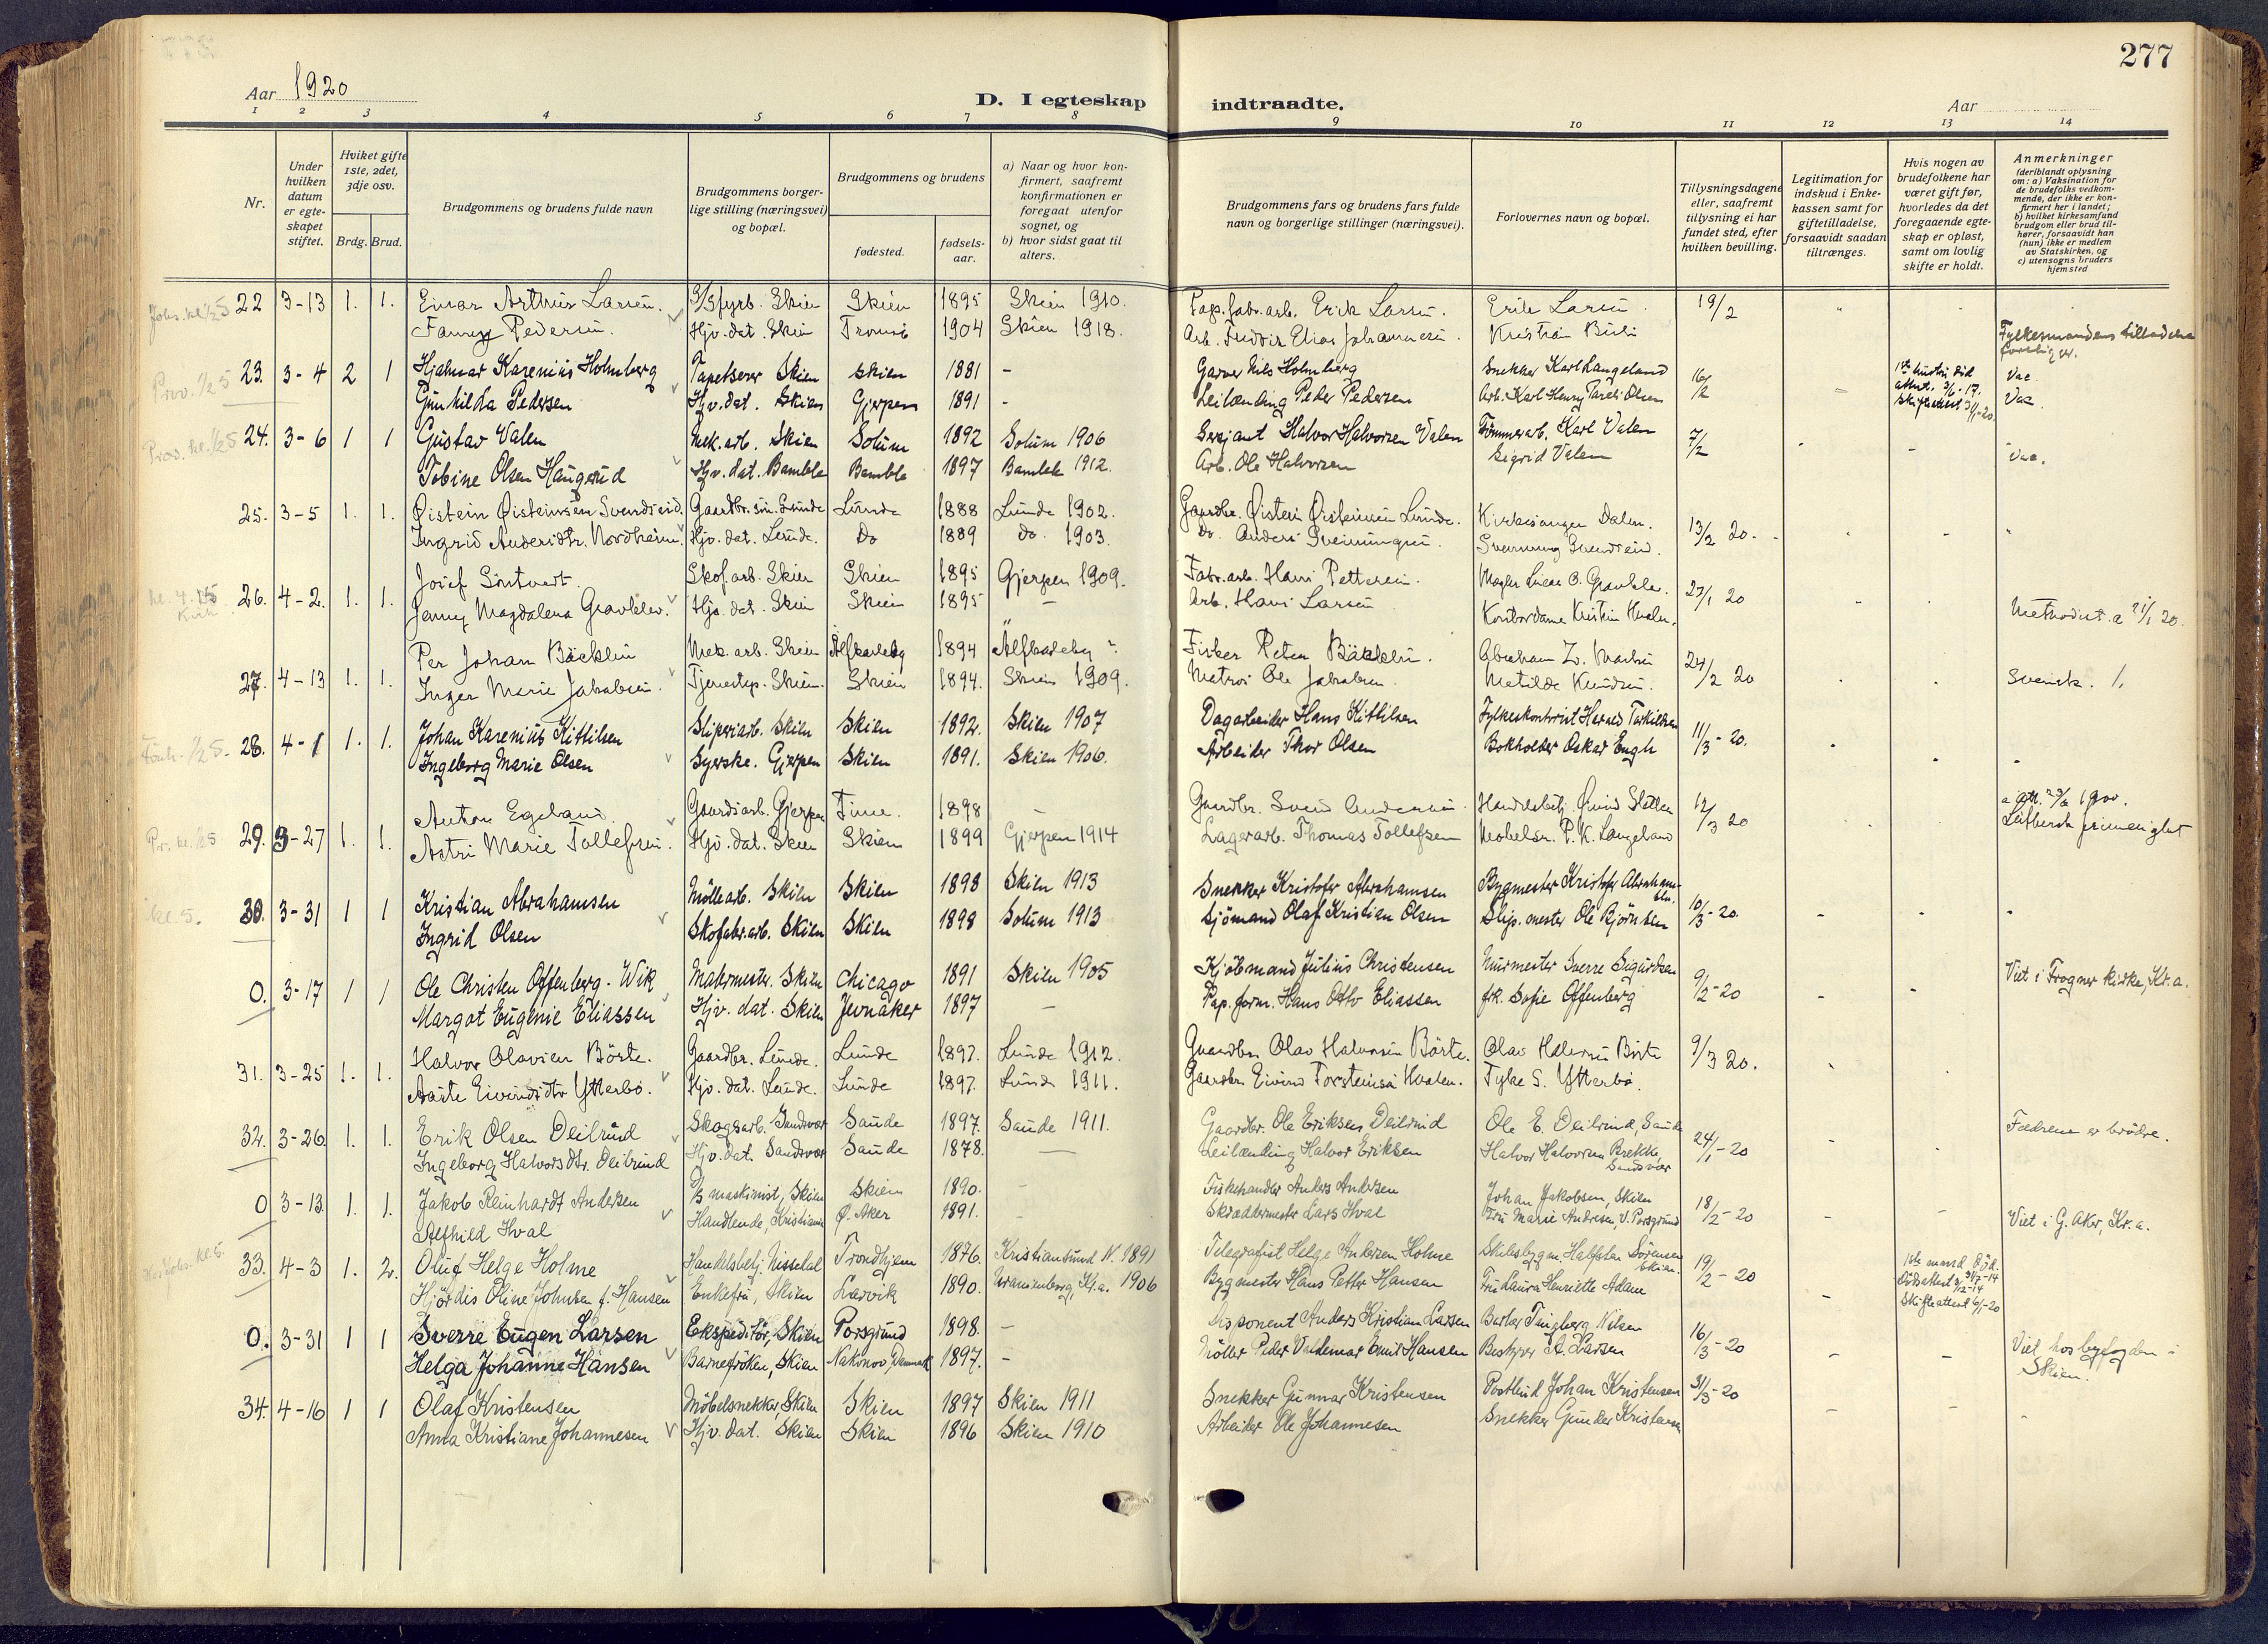 277
Aar 1920
D. I egteskap indtraadte.
Aar
1 2 3 4 5 6 7 8 9 10 11 12 13 14
Nr.
Under hvilken datum er egteskapet stiftet.
Hvilket gifte 1ste, 2det, 3dje osv.
Brdg. Brud.
Brudgommens og brudens fulde navn
Brudgommens borgerlige stilling (næringsvei) og bopæl.
Brudgommens og brudens
fødested.
fødselsaar.
a) Naar og hvor konfirmert, saafremt konfirmationen er foregaat utenfor sognet, og
b) hvor sidst gaat til alters.
Brudgommens fars og brudens fars fulde navn og borgerlige stillinger (næringsvei).
Forlovernes navn og bopæl.
Tillysningsdagene eller, saafremt tillysning ei har fundet sted, efter hvilken bevilling.
Legitimation for indskud i Enkekassen samt for giftetilladelse, forsaavidt saadan tiltrænges.
Hvis nogen av brudefolkene har været gift før, hvorledes da det foregaaende egteskap er opløst, samt om lovlig skifte er holdt.
Anmerkninger (deriblandt oplysning om: a) Vaksination for de brudefolks vedkommende, der ikke er konfirmert her i landet; b) hvilket kirkesamfund brudgom eller brud tilhører, forsaavidt han (hun) ikke er medlem av Statskirken, og c) utensogns bruders hjemsted
22 3-13 1. 1. Einar Arthur Larsen. Skien Skien 1895 Skien 1910. Pap.fabr.arb. Erik Larsen. Erik Larsen 19/2
Fanny Pedersen. Hjv. dat. Skien Tromsö 1904 Skien 1918. Arb. Fredrik Elias Johannesen. Kristian Fylkesmandens tilladelse
23. 3-4 2 1 Hjalmar Karenius Holmberg Tapetserer Skien Skien 1881 - Garver Nils Holmberg Snekker Karl Langeland 16/2 1ste hustru död Vac
Gunhilda Pedersen Hjv. dat. Skien Gjerpen 1891 - Leilænding Peder Pedersen Arb. Karl Henry Olsen Vac.
24. 3-6 1 1 Gustav Valen Mek. arb. Skien Solum 1892 Solum 1906 Sersjant Halvor Halvorsen Valen Tömmerarb. Karl Valen 7/2
Tobine Olsen Haugerud Hjv. dat. Bamble Bamble 1897 Bamble 1912. Arb. Ole Halvorsen Sigrid Valen Vac.
25. 3-5 1. 1. Øistein Øisteinsen Svendseid. Gaardbr. sön. Lunde Lunde 1888 Lunde 1902. Gaardbr. Øistein Øisteinsen Lunde. Kirkesanger Dalen. 13/2 20.
Ingrid Andersdtr. Nordheim. Hjv. dat. Lunde. Do 1889 do. 1903. Do. Anders Sveinungsen.
26. 4-2. 1. 1. Josef Sörtvedt. Skof. arb. Skien Skien 1895 Gjerpen 1909. Fabr. arb. Hans Pettersen. 27/1 20
Jenny Magdalena Gravklev. Hjv. dat. Skien Skien 1895 - Arb. Hans Larsen Kontordame Kristin Methodist. a 21/1 20.
27. 4-13 1. 1. Per Johan Bäcklin Mek. arb. Skien Älfkarleby 1894 Älfkarleby ?. Fisker Peter Bäcklin. 24/2 20
Inger Marie Jakobsen. Tjenestep. Skien. Skien 1894. Skien 1909. Matros Ole Jakobsen. Matilde Knudsen. Svensk.
28. 4-1 1. 1. Johan Karenius Kittilsen Sliperiarb. Skien Skien 1892. Skien 1907 Dagarbeider Hans Kittilsen Fylkeskontorist Terkildsen 11/3-20.
Ingeborg Marie Olsen Syerske. Gjerpen Skien 1891. Skien 1906. Arbeider Thor Olsen Bokholder Oskar Engh
29. 3-27 1. 1. Anton Egeland. Gaardsarb. Gjerpen Time. 1898 - Gaardbr. Svend Andersen. Handelsbetj. Øivind Sletten 12/3 20
Astri Marie Tollefsen. Hjv. dat. Skien Skien 1899 Gjerpen 1914 Lagerarb. Thomas Tollefsen P. K. Langeland Luthersk frimenighet
30. 3-31 1 1 Kristian Abrahamsen Möllearb. Skien Skien 1898 Skien 1913 Snekker Kristofer Abrahamsen Bygmester Kristofer Abrahamsen 10/3-20.
Ingrid Olsen Skofabr.arb. Skien Skien 1898 Solum 1913 Sjömand Olaf Kristian Olsen Slip. mester Ole Björnsen
0. 3-17 1 1 Ole Christen Offenberg-Wik Malermester. Skien Chicago 1891 Skien 1905 Kjöbmand Julius Christensen Murmester Sverre Sigurdsen 9/2-20 Viet i Frogner kirke, Kr.a.
Margot Eugenie Eliassen Hjv. dat. Skien Jevnaker 1897 - Pap. form. Hans Otto Eliassen frk. Sofie Offenberg
31. 3-25 1. 1. Halvor Olavsen Börte. Gaardbr. Lunde. Lunde 1897. Lunde 1912. Gaardbr. Olav Halvorsen Börte. Olav Halvorsen Börte 9/3 20.
Aaste Eivindsdtr Ytterbö. Hjv. dat. Lunde. Lunde 1897. Lunde 1911. Gaardbr. Eivind Torsteinsen Tyke S. Ytterbö.
32. 3-26. 1. 1. Erik Olsen Deilrind Skogsarb. Sandsvær Saude 1897. Saude 1911. Gaardbr. Ole Eriksen Deilrind Ole E. Deilrind, Saude 24/1-20 Fædrene er brödre.
Ingeborg Halvorsdtr. Deilrind Hjv. dat. Sandsvær Saude 1878. - Leilænding Halvor Eriksen Halvor Halvorsen Brekke, Sandsvær
0 3-13 1. 1. Jakob Reinhardt Andersen maskinist, Skien Skien 1890. - Fiskehandler Anders Andersen Johan Jakobsen, Skien 18/2-20
Alfhild Hval Handlende, Kristiania Ö. Aker 1891. - Skræddermester Lars Hval Fru Marie Andresen, V. Porsgrund Viet i G. Aker, Kr.a.
33. 4-3 1. 2. Oluf Helge Holme Handelsbetj. Nissedal Trondhjem 1876. Kristiansund N. 1891 Telegrafist Helge Andersen Holme Skibsbygm. Halfdan Sörensen Skien. 19/2-20 1ste mand död.
Hjördis Oline Johnsen f. Hansen Enkefru, Skien Larvik 1890. Uranienborg, Kr.a. 1906 Bygmester Hans Petter Hansen Fru Laura Henriette Adam Skifteattest 6/1-20
0. 3-31 1 1 Sverre Eugen Larsen Ekspeditör, Skien Porsgrund 1898. - Disponent Anders Kristian Larsen Barber Tingberg Nilsen 16/3-20
Helga Johanne Hansen Barnefröken, Skien Nakskov, Danmark 1897. - Möller Peder Valdemar Emil Hansen Bestyrer A. Larsen Viet hos byfogden i Skien.
34. 4-16 1 1 Olaf Kristensen Möbelsnekker, Skien Skien 1897 Skien 1911 Snekker Gunnar Kristensen Postbud Johan Kristensen 31/3-20
Anna Kristiane Johannesen Hjv. dat. Skien Skien 1896 Skien 1910 Arbeider Ole Johannesen Snekker Gunder Kristensen